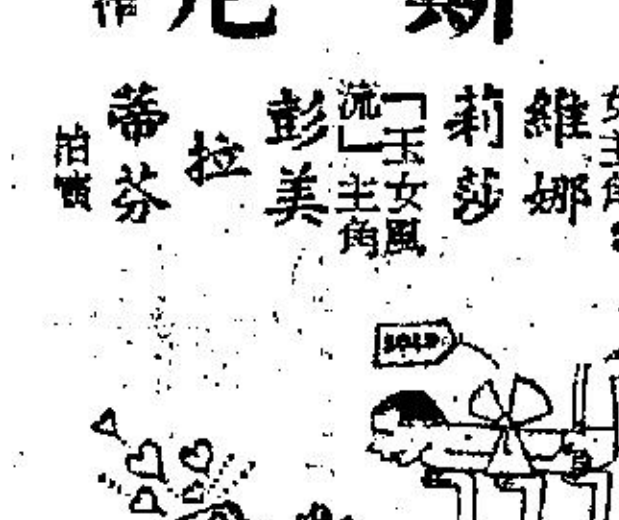 斯尼
作
女主角
維娜
莉莎
「玉女風
流」主角
彭美
拉
蒂芬
拍賣
SOLD